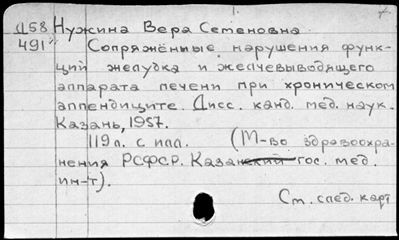 Д58 Нужина Вера Семеновна
491 Сопряжённые нарушения функ-
ций желудка и желчевыводящего
аппарата печени при хроническом
аппендиците. Дисс. канд. мед. наук.
Казань, 1957.
119 л. с илл. (М-во здравоохра-
нения РСФСР. Казанский гос. мед.
ин-т).
См. след. карт